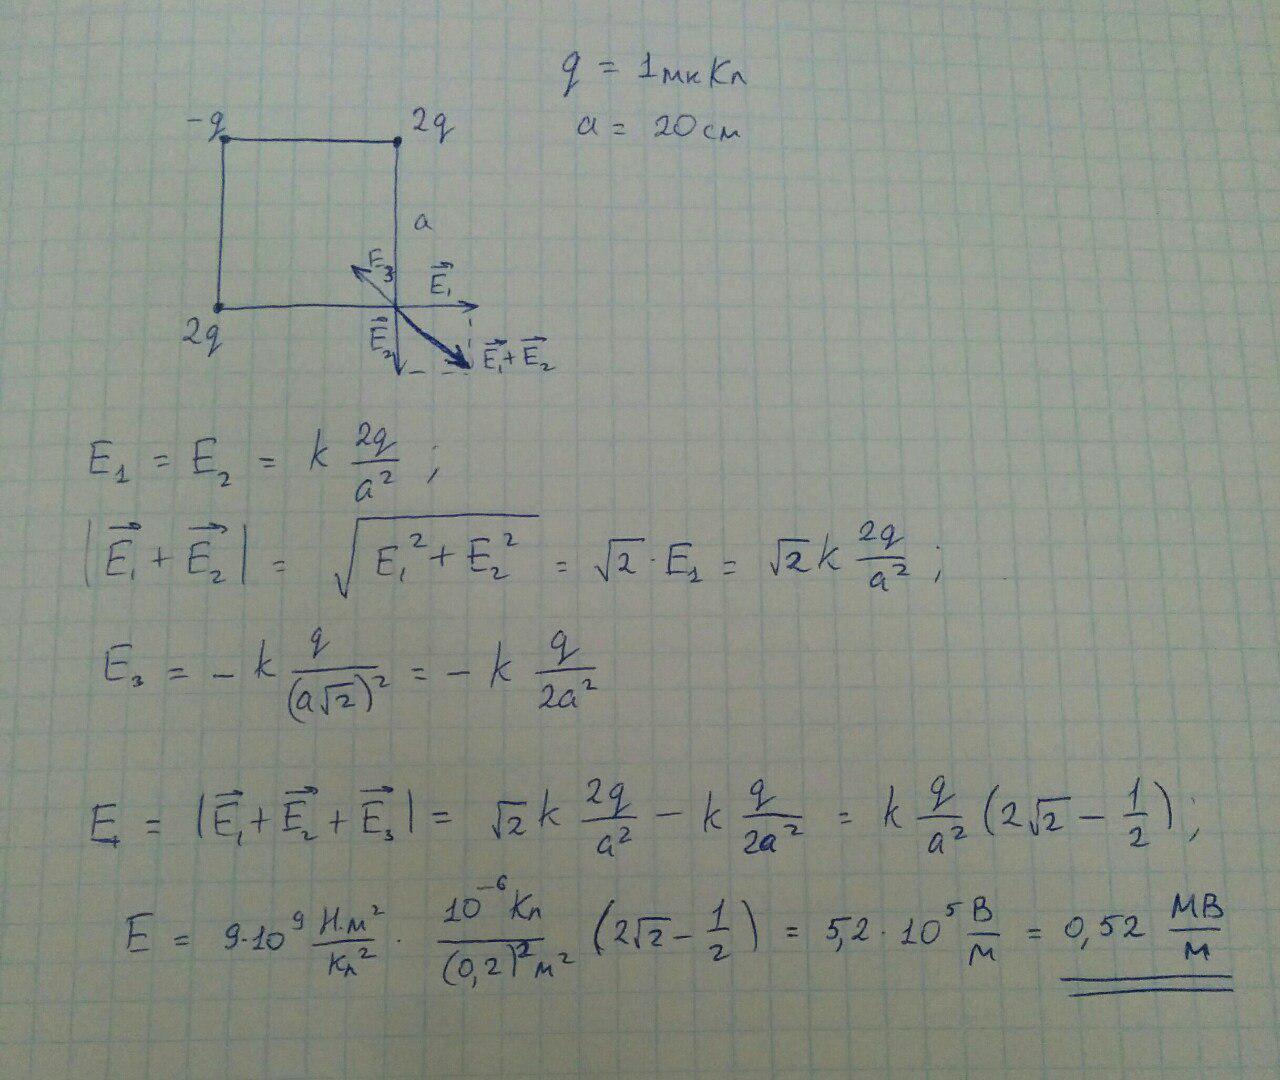 q = 1мкКл
a = 20см
-q
2q
a
E₃
E⃗₁
2q
E⃗₂
E⃗₁+E⃗₂
E₁ = E₂ = k 2q/a² ;
|E⃗₁ + E⃗₂| = √(E₁² + E₂²) = √2 · E₁ = √2 k 2q/a² ;
E₃ = - k q/(a√2)² = - k q/2a²
E = |E⃗₁ + E⃗₂ + E⃗₃| = √2 k 2q/a² - k q/2a² = k q/a² (2√2 - 1/2) ;
E = 9·10⁹ Н·м²/Кл² · 10⁻⁶ Кл/(0,2)² м² (2√2 - 1/2) = 5,2 · 10⁵ В/м = 0,52 МВ/м